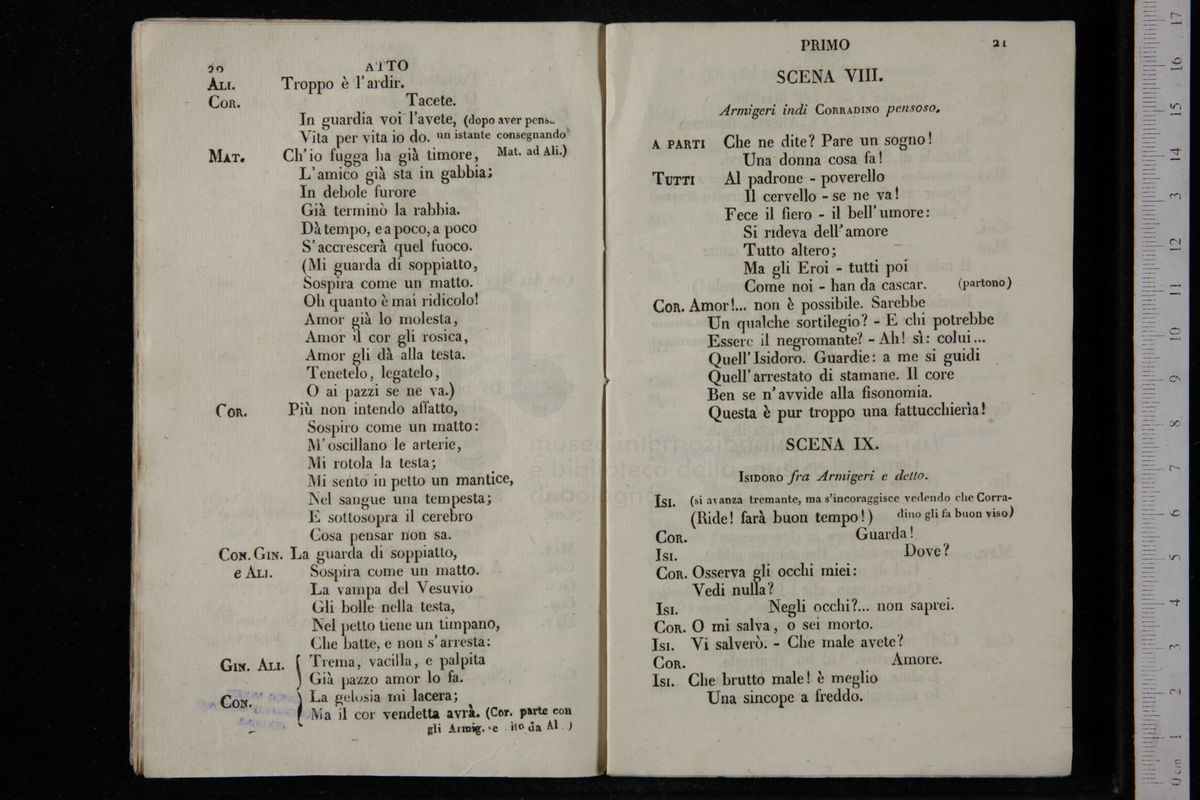 20 ATTO
ALI. Troppo è l'ardir.
COR. Tacete.
In guardia voi l'avete, (dopo aver pens..
Vita per vita io do. un istante consegnando
MAT. Ch'io fugga ha già timore, Mat. ad Ali.)
L'amico già sta in gabbia;
In debole furore
Già terminò la rabbia.
Dà tempo, e a poco, a poco
S'accrescerà quel fuoco.
(Mi guarda di soppiatto,
Sospira come un matto.
Oh quanto è mai ridicolo!
Amor già lo molesta,
Amor il cor gli rosica,
Amor gli dà alla testa.
Tenetelo, legatelo,
O ai pazzi se ne va.)
COR. Più non intendo affatto,
Sospiro come un matto:
M'oscillano le arterie,
Mi rotola la testa;
Mi sento in petto un mantice,
Nel sangue una tempesta;
E sottosopra il cerebro
Cosa pensar non sa.
CON. GIN. La guarda di soppiatto,
e ALI. Sospira come un matto.
La vampa del Vesuvio
Gli bolle nella testa,
Nel petto tiene un timpano,
Che batte, e non s'arresta:
GIN. ALI. Trema, vacilla, e palpita
Già pazzo amor lo fa.
CON. La gelosia mi lacera;
Ma il cor vendetta avrà. (Cor. parte con
gli Armig. da Al.)
PRIMO 21
SCENA VIII.
Armigeri indi CORRADINO pensoso.
A PARTI Che ne dite? Pare un sogno!
Una donna cosa fa!
TUTTI Al padrone - poverello
Il cervello - se ne va!
Fece il fiero - il bell'umore:
Si rideva dell'amore
Tutto altero;
Ma gli Eroi - tutti poi
Come noi - han da cascar. (partono)
COR. Amor!... non è possibile. Sarebbe
Un qualche sortilegio? - E chi potrebbe
Essere il negromante? - Ah! sì: colui...
Quell'Isidoro. Guardie: a me si guidi
Quell'arrestato di stamane. Il core
Ben se n'avvide alla fisonomia.
Questa è pur troppo una fattucchieria!
SCENA IX.
ISIDORO fra Armigeri e detto.
ISI. (si avanza tremante, ma s'incoraggisce vedendo che Corra-
(Ride! farà buon tempo!) dino gli fa buon viso)
COR. Guarda!
ISI. Dove?
COR. Osserva gli occhi miei:
Vedi nulla?
ISI. Negli occhi?... non saprei.
COR. O mi salva, o sei morto.
ISI. Vi salverò. - Che male avete?
COR. Amore.
ISI. Che brutto male! è meglio
Una sincope a freddo.
museo internazionale
e biblioteca della
di bologna
0 cm 1 2 3 4 5 6 7 8 9 10 11 12 13 14 15 16 17